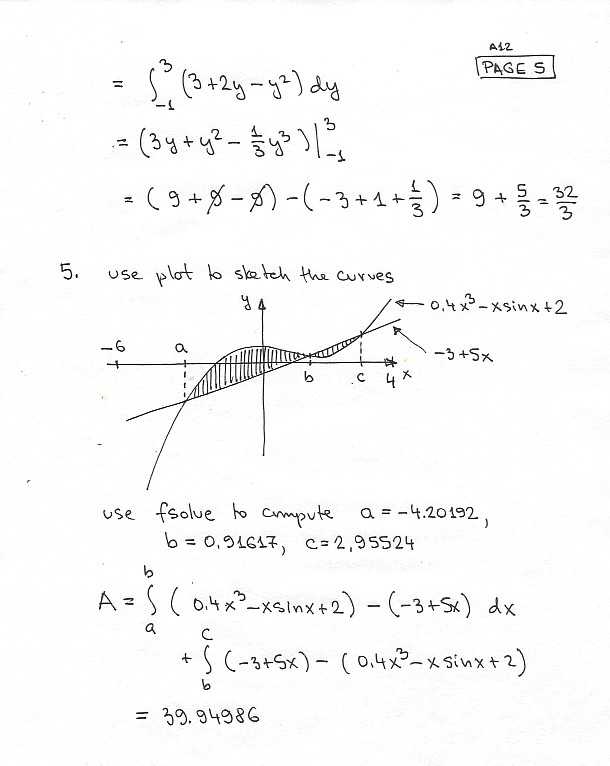 A12
PAGE 5
= ∫₋₁³ (3+2y-y²) dy
= (3y+y²-⅓y³)|₋₁³
= (9+9-9)-(-3+1+1/3) = 9+5/3 = 32/3
5. use plot to sketch the curves
y
0.4x³-xsinx+2
-6 a
-3+5x
b c 4 x
use fsolve to compute a = -4.20192,
b = 0,91617, c = 2,95524
A = ∫ₐᵇ (0.4x³-xsinx+2) - (-3+5x) dx
+ ∫_b^c (-3+5x) - (0.4x³-xsinx+2)
= 39.94986